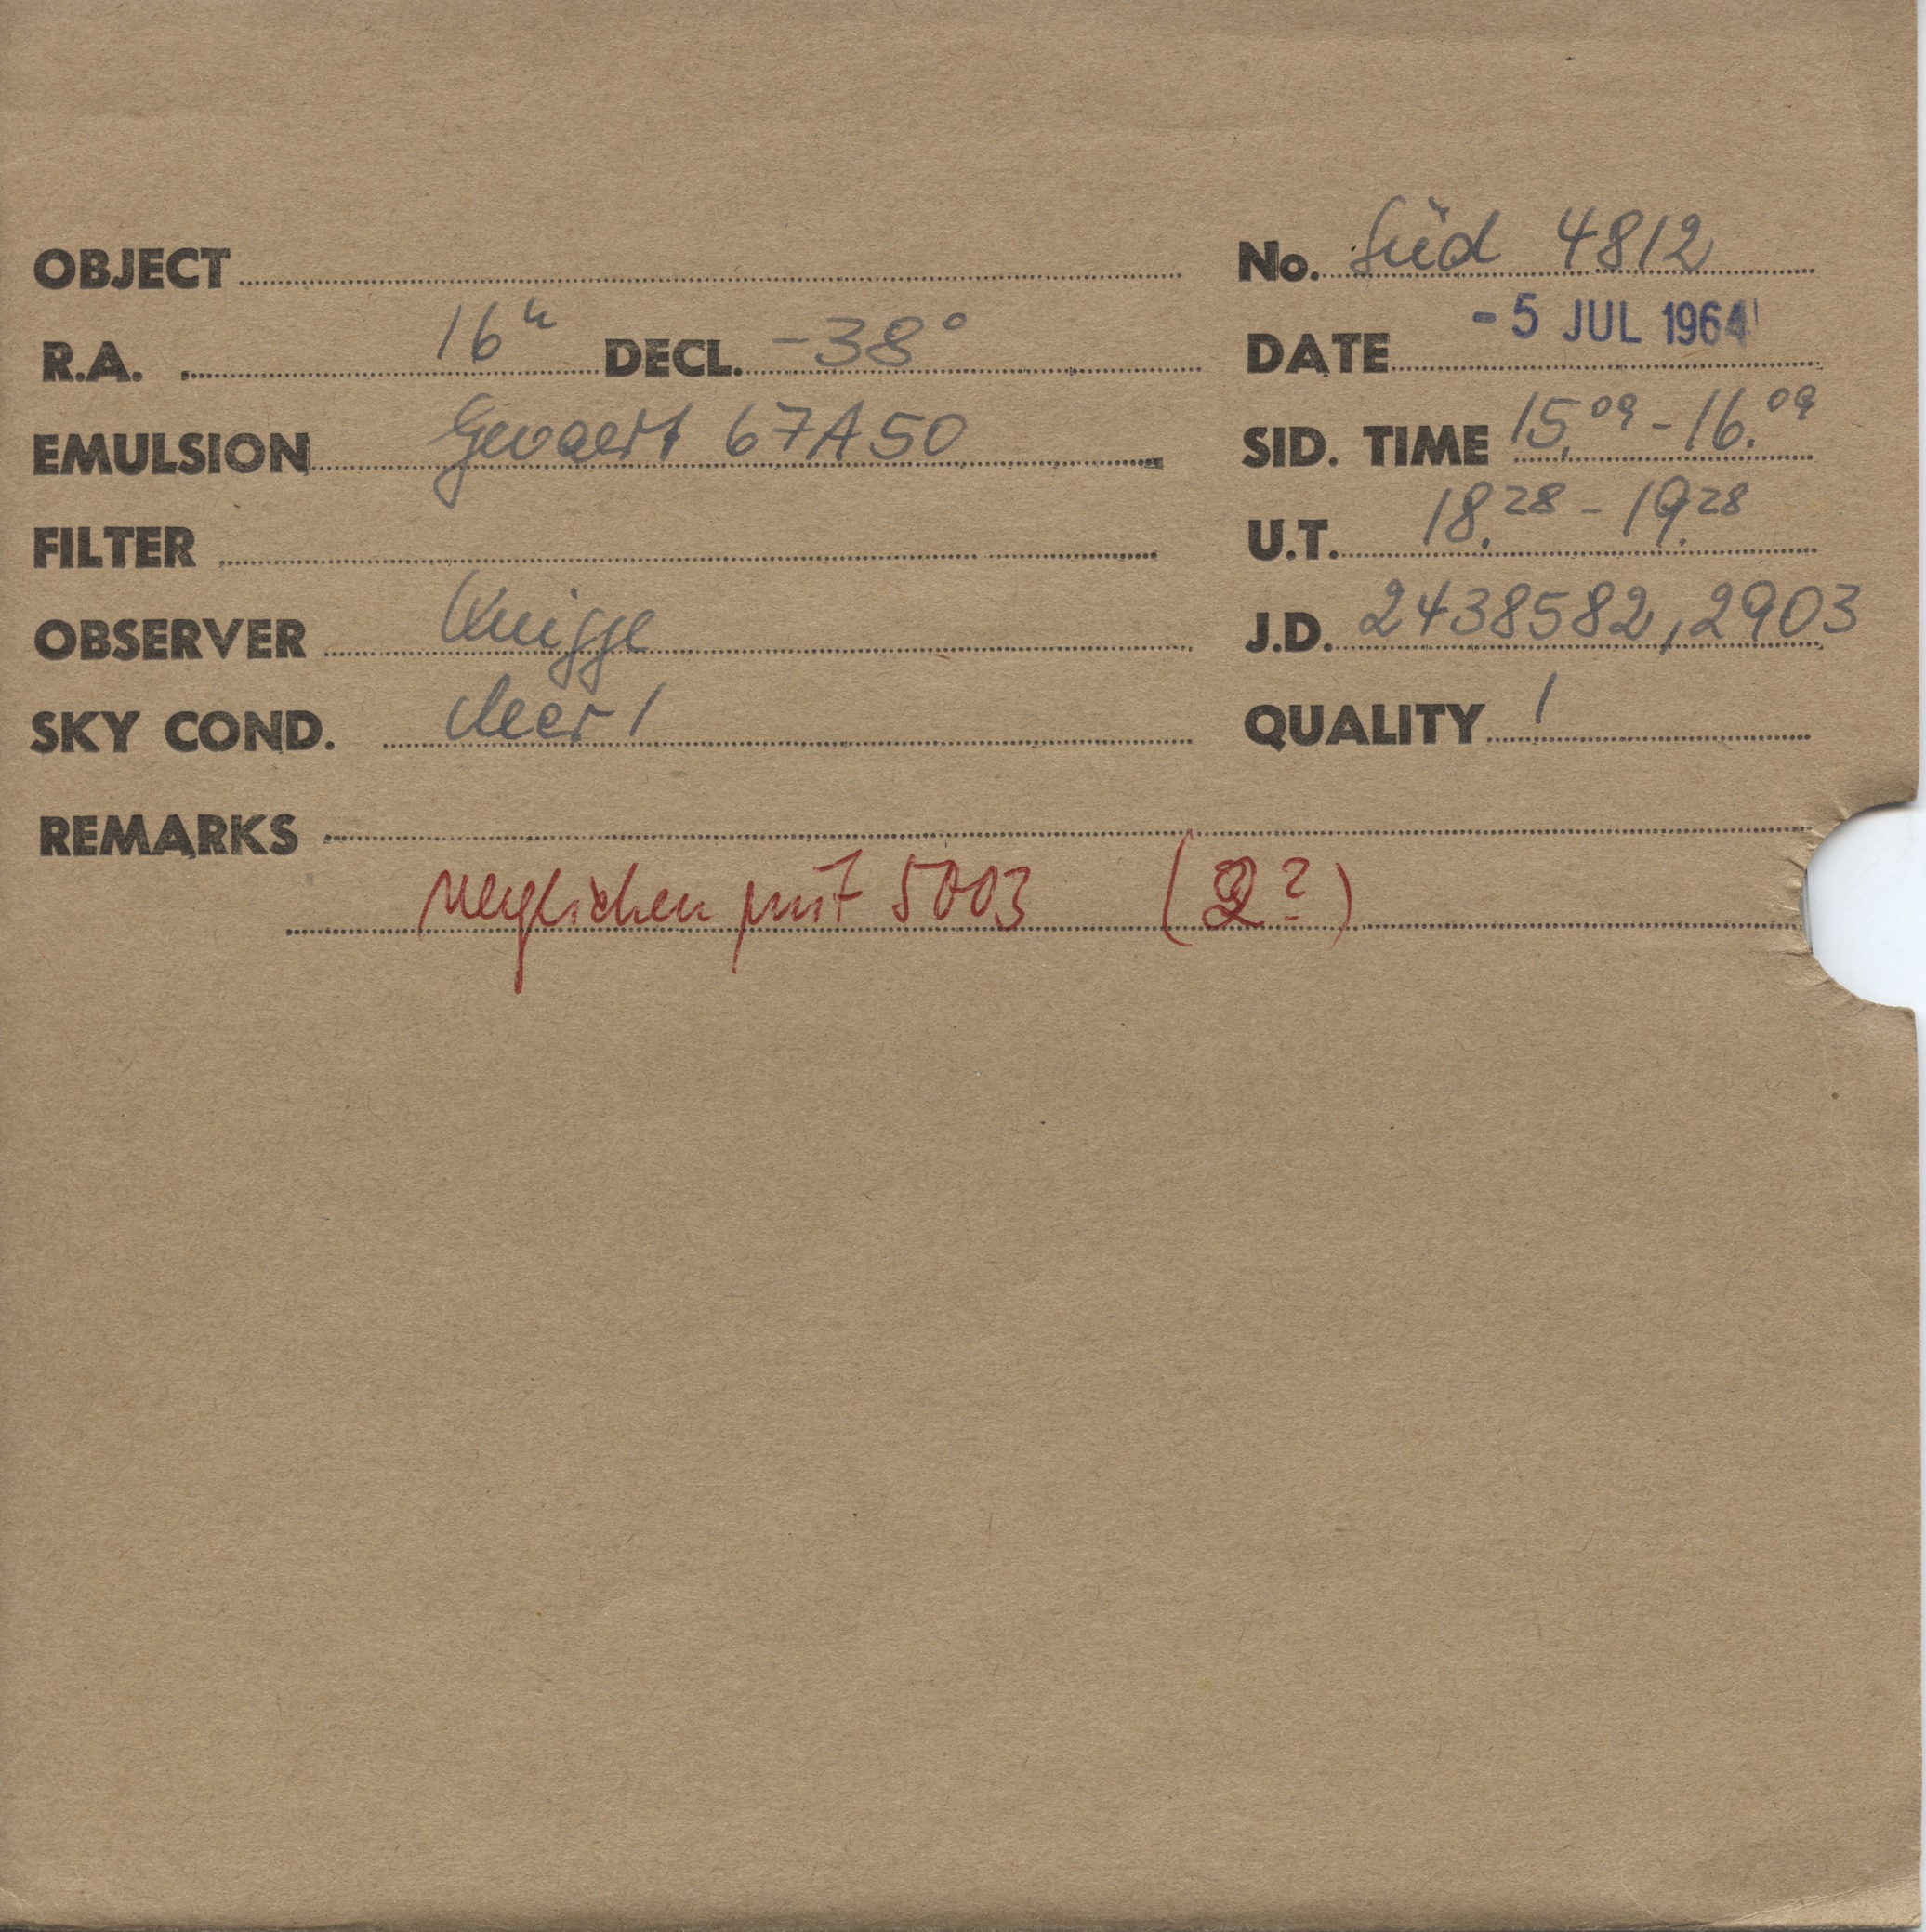 OBJECT No. Süd 4812
R.A. 16h DECL. -38° DATE - 5 JUL 1964
EMULSION Gevaert 67A50 SID. TIME 15.09 - 16.09
FILTER U.T. 18.28 - 19.28
OBSERVER Knigge J.D. 2438582,2903
SKY COND. clear 1 QUALITY 1
REMARKS
verglichen mit 5003 (2?)